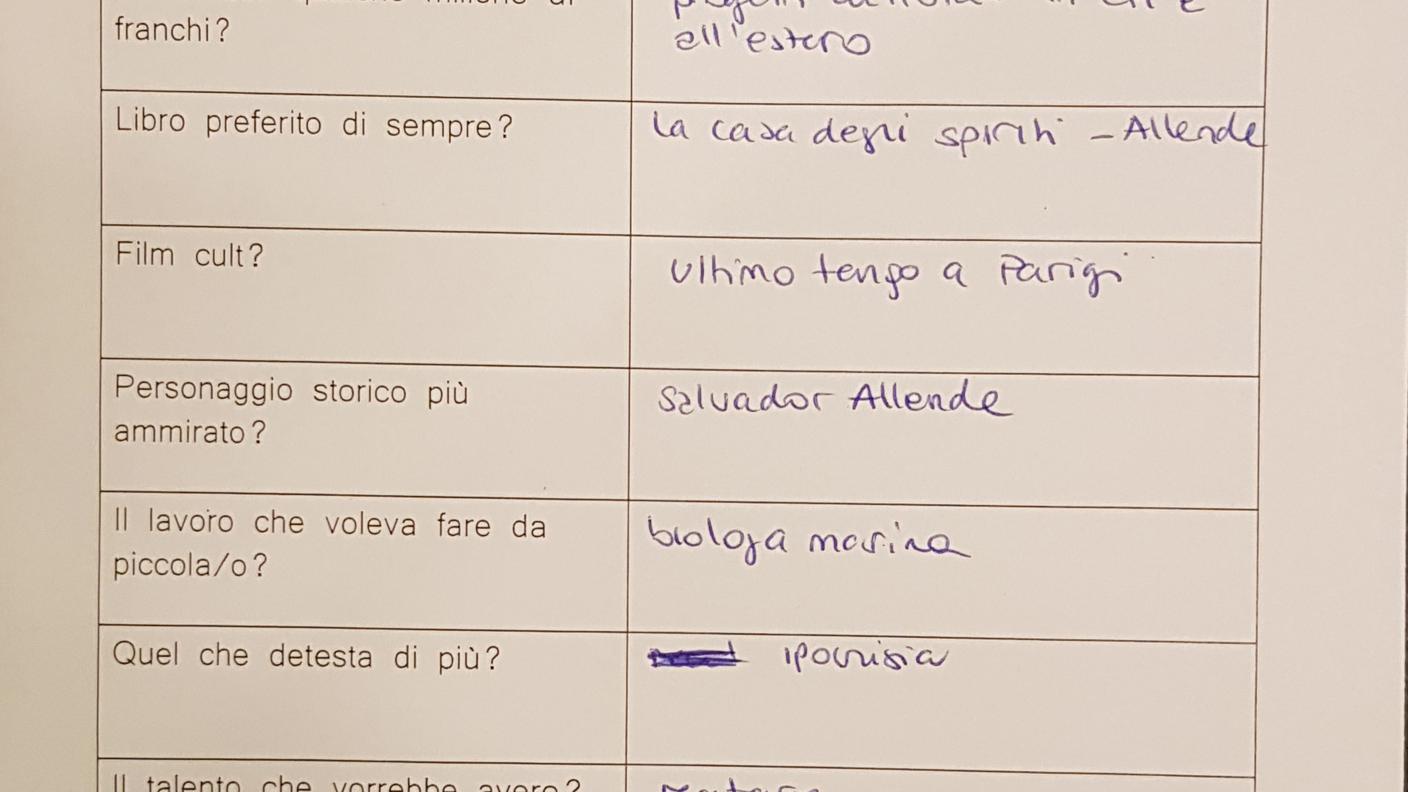 franchi?
all'estero
Libro preferito di sempre?
la casa degli spiriti – Allende
Film cult?
Ultimo tengo a Parigi
Personaggio storico più
ammirato?
Salvador Allende
Il lavoro che voleva fare da
piccola/o?
biologa marina
Quel che detesta di più?
ipocrisia
Il talento che vorrebbe avere?